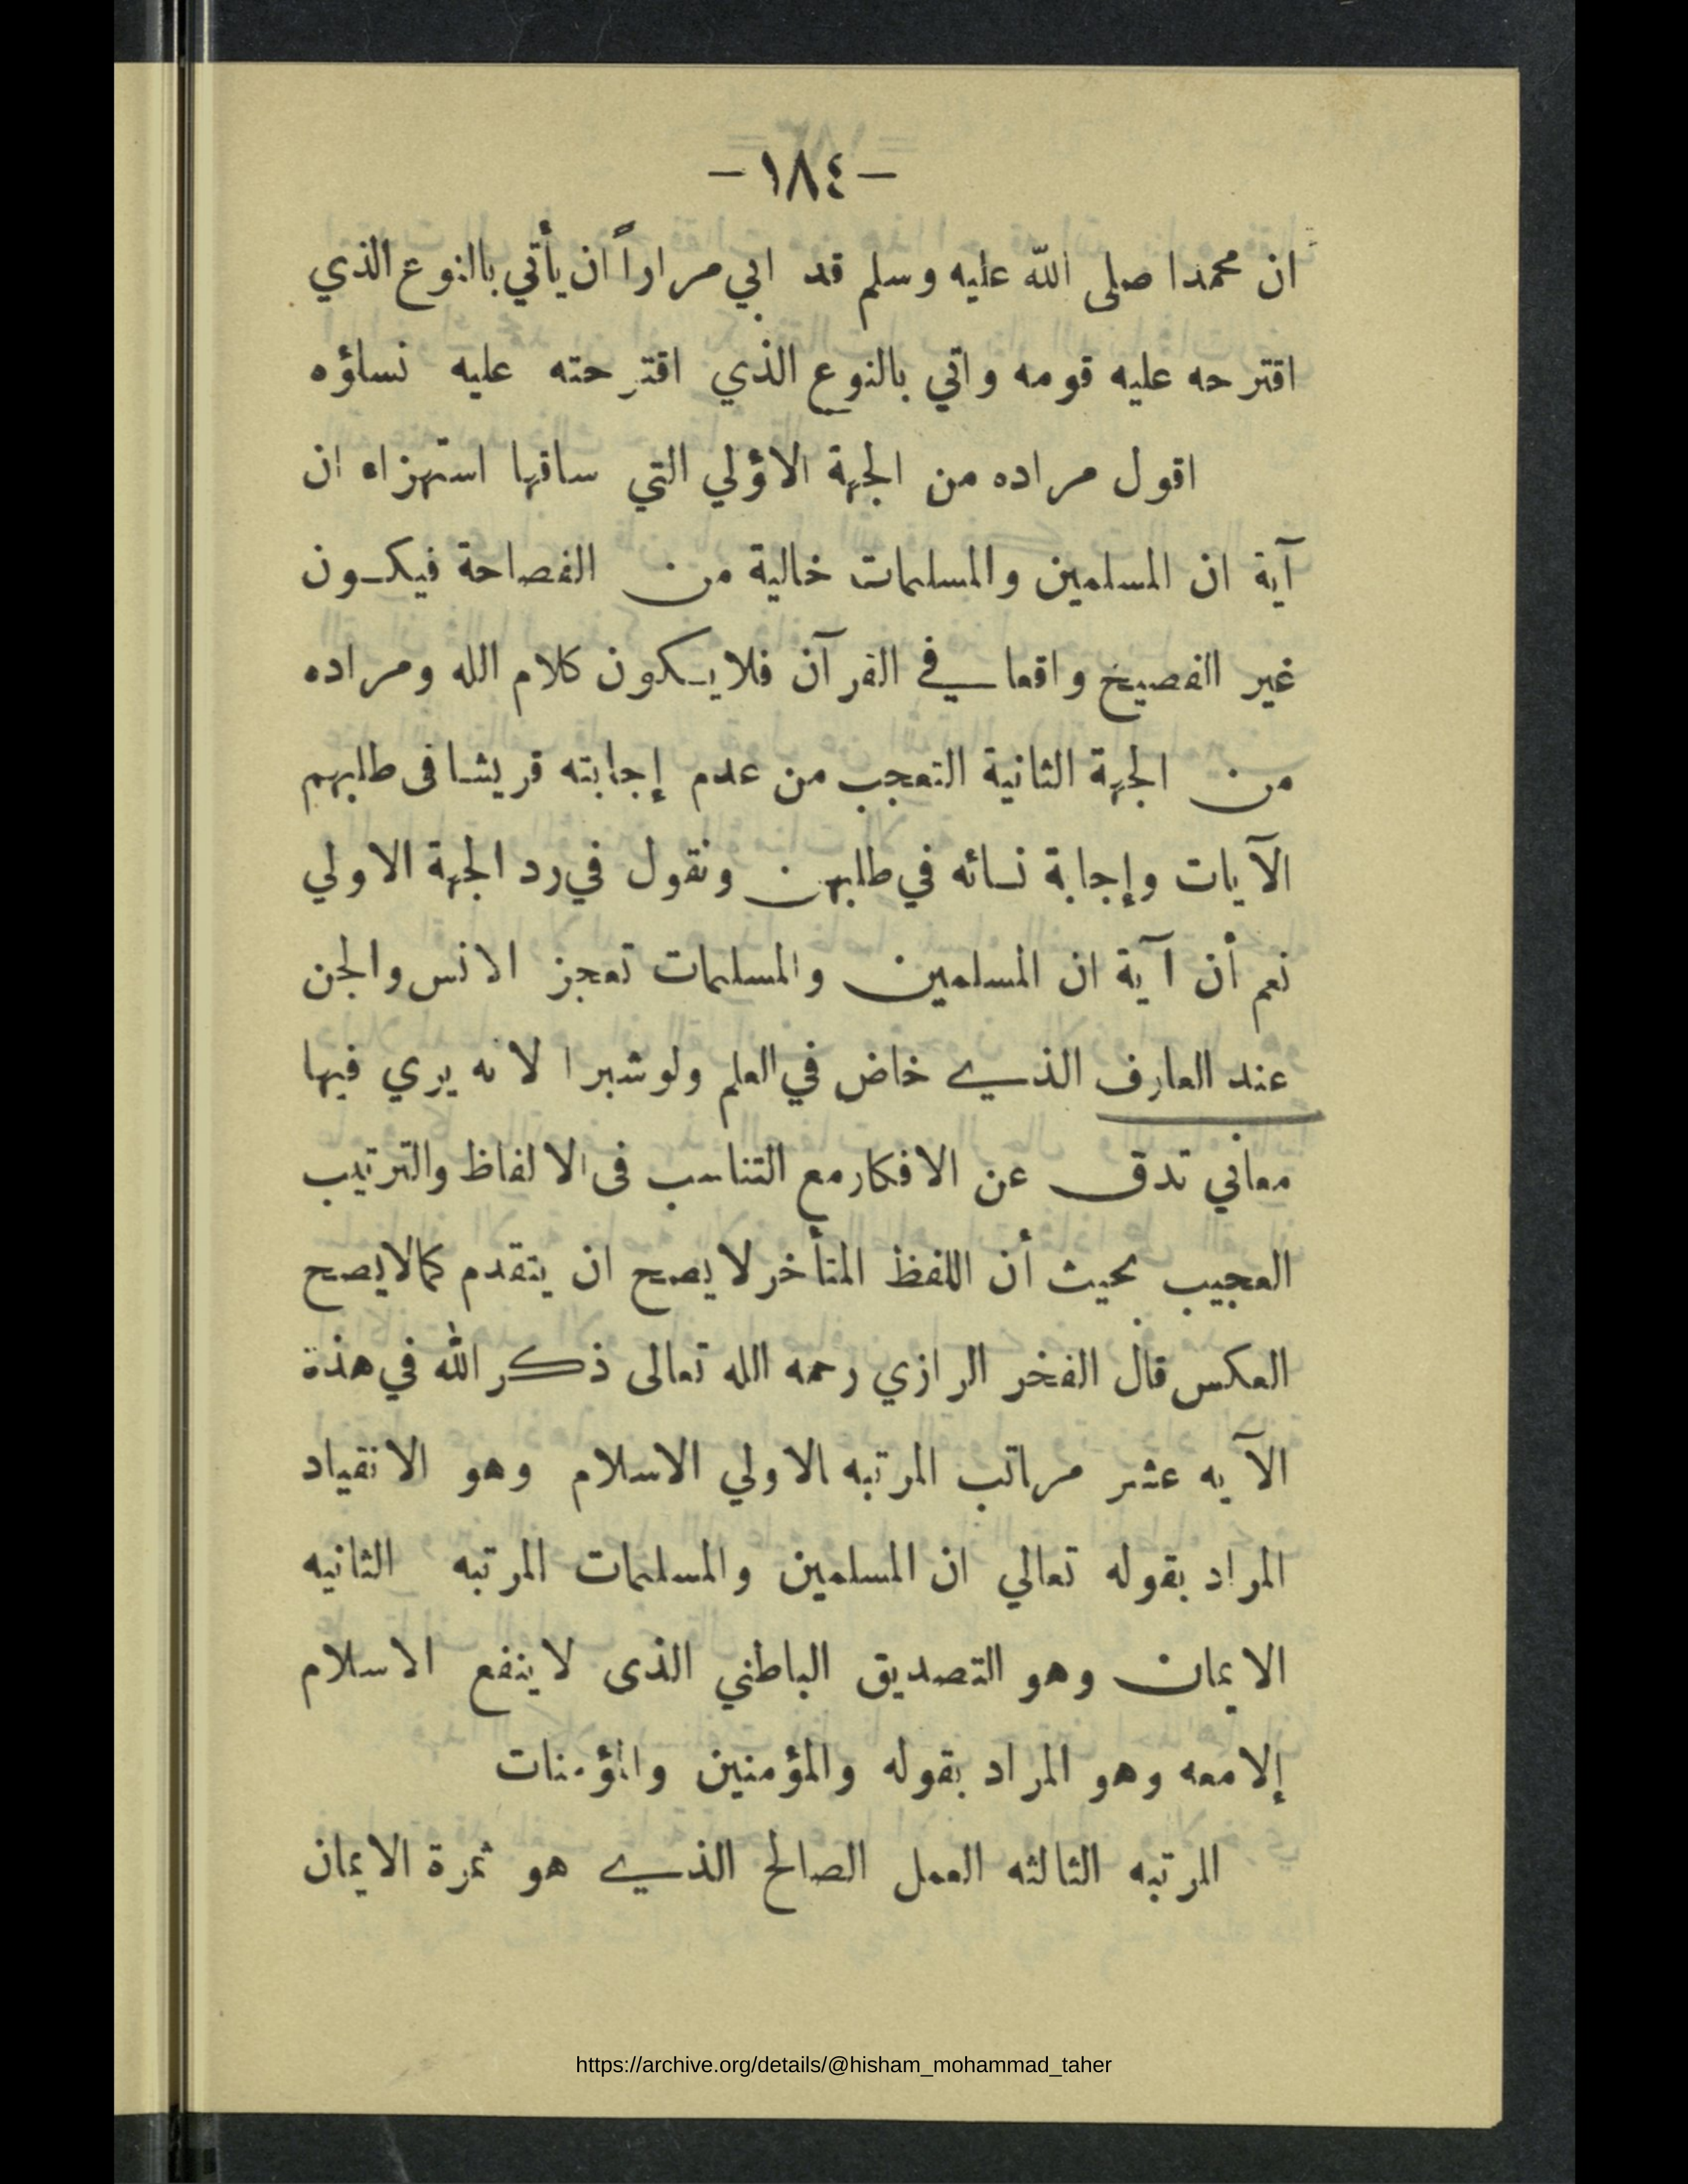 -١٨٤-
ان محمدا صلى الله عليه وسلم قد ابي مراراً ان يأتي بالنوع الذي
اقترحه عليه قومه واتي بالنوع الذي اقترحته عليه نساؤه
اقول مراده من الجهة الاؤلي التي ساقها استهزاء ان
آية ان المسلمين والمسلمات خالية من الفصاحة فيكون
غير الفصيخ واقعا في القرآن فلا يكون كلام الله ومراده
من الجهة الثانية التعجب من عدم إجابته قريشا فى طلبهم
الآيات وإجابة نسائه في طلبهن ونقول في رد الجهة الاولي
نعم أن آية ان المسلمين والمسلمات تعجز الانس والجن
عند العارف الذي خاض في العلم ولو شبرا لانه يري فيها
معاني تدق عن الافكار مع التناسب فى الالفاظ والترتيب
العجيب بحيث أن اللفظ المتأخر لا يصح ان يتقدم كمالايصح
العكس قال الفخر الرازي رحمه الله تعالى ذكر الله في هذة
الآيه عشر مراتب المرتبه الاولي الاسلام وهو الانقياد
المراد بقوله تعالي ان المسلمين والمسلمات المرتبه الثانيه
الايمان وهو التصديق الباطني الذى لا ينفع الاسلام
إلامعه وهو المراد بقوله والمؤمنين والمؤمنات
المرتبه الثالثه العمل الصالح الذي هو ثمرة الايمان
https://archive.org/details/@hisham_mohammad_taher